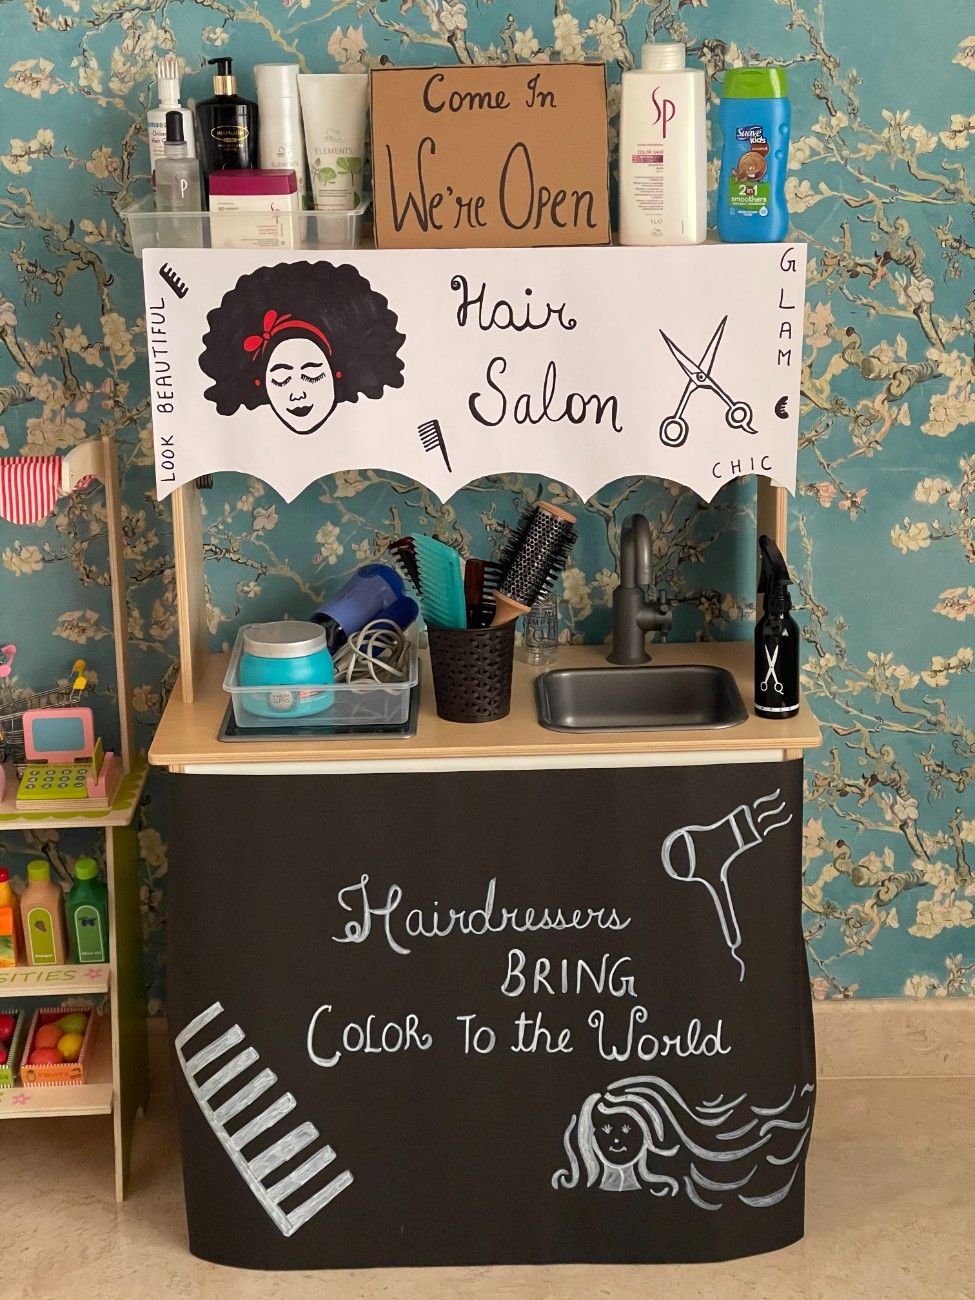 Come In
We're Open
ELEMENTS
ELEMENTS
SP
COLOR SAVE
1L e
Suave
kids
coconut
2 in 1
smoothers
P
LOOK BEAUTIFUL
Hair
Salon
GLAM
CHIC
Hairdressers
BRING
COLOR To the World
SITIES